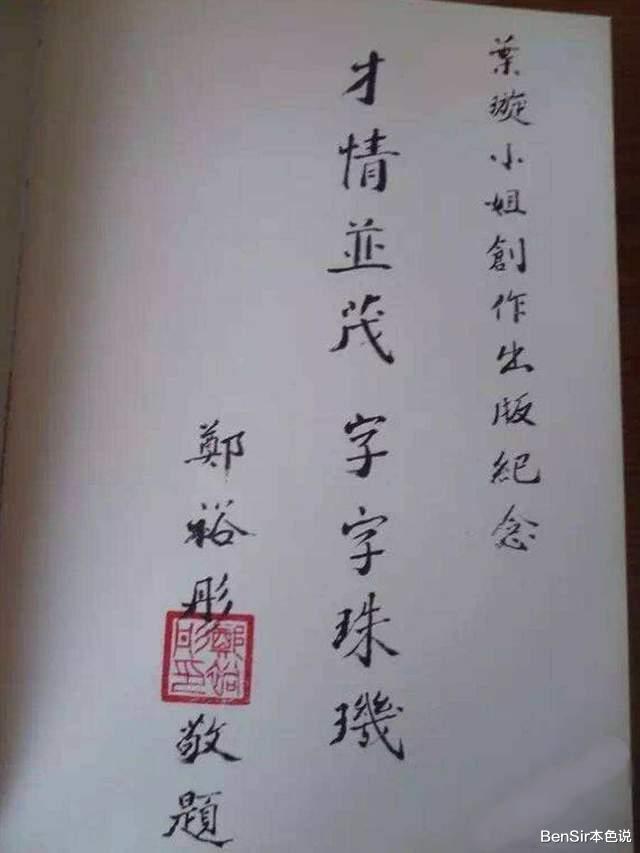 葉璇小姐創作出版紀念
才情並茂 字字珠璣
鄭裕彤 敬題
鄭裕
彤印
BenSir本色说